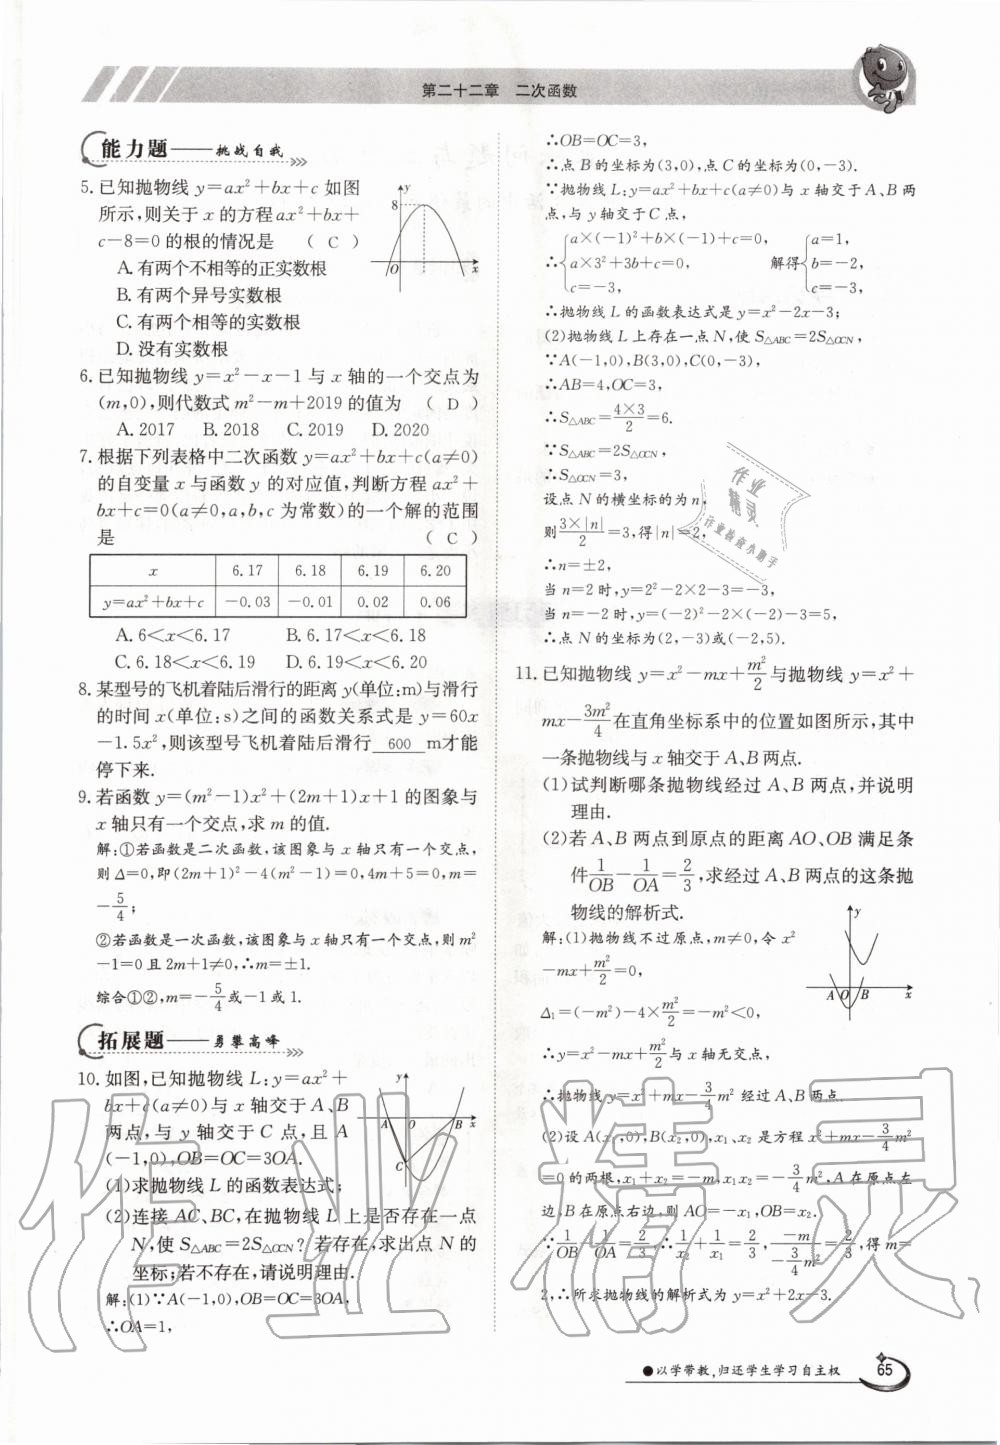 第二十二章 二次函数
能力题——挑战自我
5. 已知抛物线 y=ax²+bx+c 如图
所示,则关于 x 的方程 ax²+bx+
c-8=0 的根的情况是 ( C )
A. 有两个不相等的正实数根
B. 有两个异号实数根
C. 有两个相等的实数根
D. 没有实数根
y
8
O
x
6. 已知抛物线 y=x²-x-1 与 x 轴的一个交点为
(m,0),则代数式 m²-m+2019 的值为 ( D )
A. 2017 B. 2018 C. 2019 D. 2020
7. 根据下列表格中二次函数 y=ax²+bx+c(a≠0)
的自变量 x 与函数 y 的对应值,判断方程 ax²+
bx+c=0(a≠0,a,b,c 为常数)的一个解的范围
是 ( C )
x 6.17 6.18 6.19 6.20
y=ax²+bx+c -0.03 -0.01 0.02 0.06
A. 6<x<6.17 B. 6.17<x<6.18
C. 6.18<x<6.19 D. 6.19<x<6.20
8. 某型号的飞机着陆后滑行的距离 y(单位:m)与滑行
的时间 x(单位:s)之间的函数关系式是 y=60x
-1.5x²,则该型号飞机着陆后滑行 600 m才能
停下来.
9. 若函数 y=(m²-1)x²+(2m+1)x+1 的图象与
x 轴只有一个交点,求 m 的值.
解:①若函数是二次函数,该图象与 x 轴只有一个交点,
则 Δ=0,即(2m+1)²-4(m²-1)=0,4m+5=0,m=
-5/4;
②若函数是一次函数,该图象与 x 轴只有一个交点,则 m²
-1=0 且 2m+1≠0,∴m=±1.
综合①②,m=-5/4或-1或1.
拓展题——勇攀高峰
10. 如图,已知抛物线 L:y=ax²+
bx+c(a≠0)与 x 轴交于 A、B
两点,与 y 轴交于 C 点,且 A
(-1,0),OB=OC=3OA.
(1)求抛物线 L 的函数表达式;
(2)连接 AC、BC,在抛物线 L 上是否存在一点
N,使 S△ABC=2S△OCN?若存在,求出点 N 的
坐标;若不存在,请说明理由.
y
A O B x
C
解:(1)∵A(-1,0),OB=OC=3OA,
∴OA=1,
∴OB=OC=3,
∴点 B 的坐标为(3,0),点 C 的坐标为(0,-3).
∵抛物线 L:y=ax²+bx+c(a≠0)与 x 轴交于 A、B 两
点,与 y 轴交于 C 点,
∴{a×(-1)²+b×(-1)+c=0, a×3²+3b+c=0, c=-3, 解得{a=1, b=-2, c=-3,
∴抛物线 L 的函数表达式是 y=x²-2x-3;
(2)抛物线 L 上存在一点 N,使 S△ABC=2S△OCN,
∵A(-1,0),B(3,0),C(0,-3),
∴AB=4,OC=3,
∴S△ABC=4×3/2=6.
∵S△ABC=2S△OCN,
∴S△OCN=3,
设点 N 的横坐标的为 n,
则3×|n|/2=3,得|n|=2,
∴n=±2,
当 n=2 时,y=2²-2×2-3=-3,
当 n=-2 时,y=(-2)²-2×(-2)-3=5,
∴点 N 的坐标为(2,-3)或(-2,5).
11. 已知抛物线 y=x²-mx+m²/2与抛物线 y=x²+
mx-3m²/4在直角坐标系中的位置如图所示,其中
一条抛物线与 x 轴交于 A、B 两点.
(1)试判断哪条抛物线经过 A、B 两点,并说明
理由.
(2)若 A、B 两点到原点的距离 AO、OB 满足条
件1/OB-1/OA=2/3,求经过 A、B 两点的这条抛
物线的解析式.
y
A O B x
解:(1)抛物线不过原点,m≠0,令 x²
-mx+m²/2=0,
Δ₁=(-m²)-4×m²/2=-m²<0,
∴y=x²-mx+m²/2与 x 轴无交点,
∴抛物线 y=x²+mx-3/4m² 经过 A、B 两点.
(2)设 A(x₁,0),B(x₂,0),x₁、x₂ 是方程 x²+mx-3/4m²
=0 的两根,x₁+x₂=-m,x₁x₂=-3/4m²,A 在原点左
边,B 在原点右边,则 AO=-x₁,OB=x₂.
∵1/OB-1/OA=2/3,∴1/x₂+1/x₁=2/3,-m/(-3/4m²)=2/3,得 m=
2,∴所求抛物线的解析式为 y=x²+2x-3.
作业
精灵
作业检查小助手
作业精灵
●以学带教,归还学生学习自主权
65